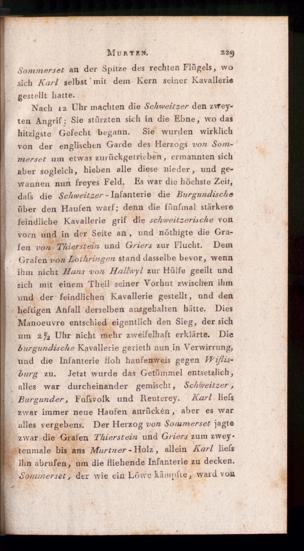 MURTEN. 229
Sommerset an der Spitze des rechten Flügels, wo
sich Karl selbst mit dem Kern seiner Kavallerie
gestellt hatte.
Nach 12 Uhr machten die Schweitzer den zwey-
ten Angrif; Sie stürzten sich in die Ebne, wo das
hitzigste Gefecht begann. Sie wurden wirklich
von der englischen Garde des Herzogs von Som-
merset um etwas zurückgetrieben, ermannten sich
aber sogleich, hieben alle diese nieder, und ge-
wannen nun freyes Feld. Es war die höchste Zeit,
daſs die Schweitzer-Infanterie die Burgundische
über den Haufen warf; denn die fünfmal stärkere
feindliche Kavallerie grif die schweitzerische von
vorn und in der Seite an, und nöthigte die Gra-
fen von Thierstein und Griers zur Flucht. Dem
Grafen von Lothringen stand dasselbe bevor, wenn
ihm nicht Hans von Hallwyl zur Hülfe geeilt und
sich mit einem Theil seiner Vorhut zwischen ihm
und der feindlichen Kavallerie gestellt, und den
heftigen Anfall derselben ausgehalten hätte. Dies
Manoeuvre entschied eigentlich den Sieg, der sich
um 2½ Uhr nicht mehr zweifelhaft erklärte. Die
burgundische Kavallerie gerieth nun in Verwirrung,
und die Infanterie floh haufenweis gegen Wiflis-
burg zu. Jetzt wurde das Getümmel entsetzlich,
alles war durcheinander gemischt, Schweitzer,
Burgunder, Fuſsvolk und Reuterey. Karl lieſs
zwar immer neue Haufen anrücken, aber es war
alles vergebens. Der Herzog von Sommerset jagte
zwar die Grafen Thierstein und Griers zum zwey-
tenmale bis ans Murtner-Holz, allein Karl lieſs
ihn abrufen, um die fliehende Infanterie zu decken.
Sommerset, der wie ein Löwe kämpfte, ward von